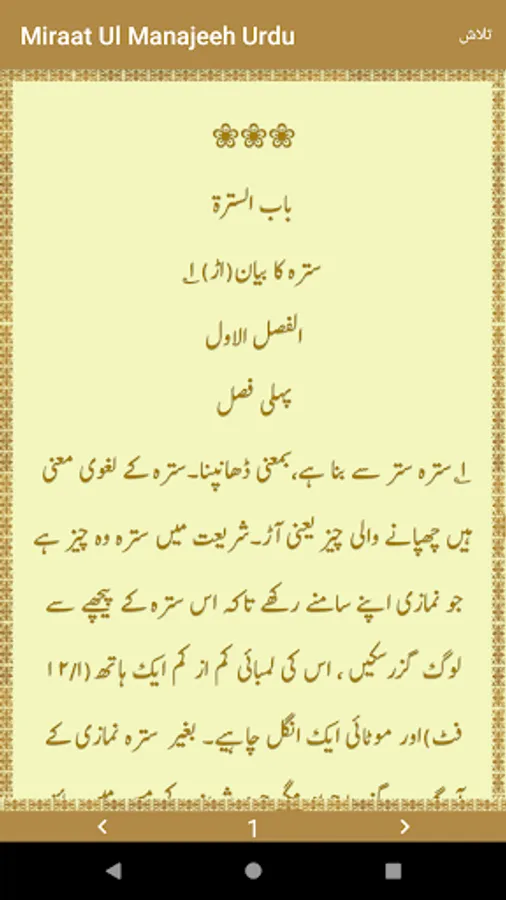 Miraat Ul Manajeeh Urdu
تلاش
باب السترة
سترہ کا بیان(اڑ)۱؎
الفصل الاول
پہلی فصل
۱؎ سترہ ستر سے بنا ہے،بمعنی ڈھانپنا۔سترہ کے لغوی معنی
ہیں چھپانے والی چیز یعنی آڑ۔شریعت میں سترہ وہ چیز ہے
جو نمازی اپنے سامنے رکھے تاکہ اس سترہ کے پیچھے سے
لوگ گزرسکیں ، اس کی لمبائی کم از کم ایک ہاتھ (۱/۱۲
فٹ)اور موٹائی ایک انگل چاہیے۔ بغیر سترہ نمازی کے
1